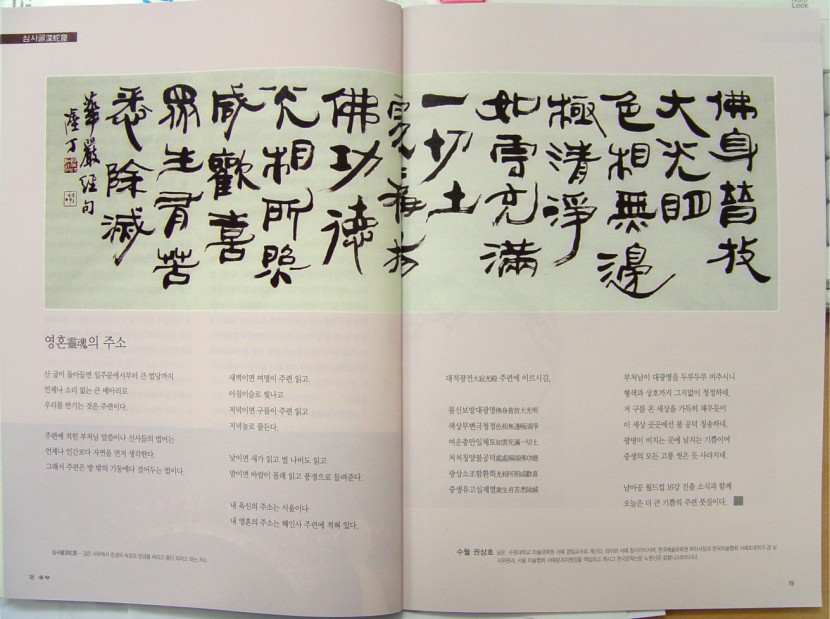 佛身普放
大光明
色相無邊
極清淨
如雲充滿
一切土
處處稱揚
佛功德
光相所照
咸歡喜
眾生有苦
悉除滅
華嚴經句
영혼靈魂의 주소
산 굽이 돌아들면 일주문에서부터 큰 법당까지
언제나 소리 없는 큰 메아리로
우리를 반기는 것은 주련이다.
주련에 적힌 부처님 말씀이나 선사들의 법어는
언제나 인간보다 자연을 먼저 생각한다.
그래서 주련은 방 밖의 기둥에다 걸어두는 법이다.
새벽이면 여명이 주련 읽고
아침이슬로 빛나고
저녁이면 구름이 주련 읽고
저녁놀로 물든다.
낮이면 새가 읽고 벌 나비도 읽고
밤이면 바람이 몰래 읽고 풍경으로 들려준다.
내 육신의 주소는 서울이나
내 영혼의 주소는 해인사 주련에 적혀 있다.
대적광전大寂光殿 주련에 이르시길,
불신보방대광명佛身普放大光明
색상무변극청정色相無邊極淸淨
여운충만일체토如雲充滿一切土
처처칭양불공덕處處稱揚佛功德
광상소조함환희光相所照咸歡喜
중생유고실제멸衆生有苦悉除滅
부처님이 대광명을 두루두루 비추시니
형색과 상호까지 그지없이 청정하네.
저 구름 온 세상을 가득히 채우듯이
이 세상 곳곳에선 불 공덕 칭송하네.
광명이 비치는 곳에 넘치는 기쁨이여
중생의 모든 고통 씻은 듯 사라지네.
남아공 월드컵 16강 진출 소식과 함께
오늘은 더 큰 기쁨의 주련 붓질이다.
수월 권상호
18
19
Lock